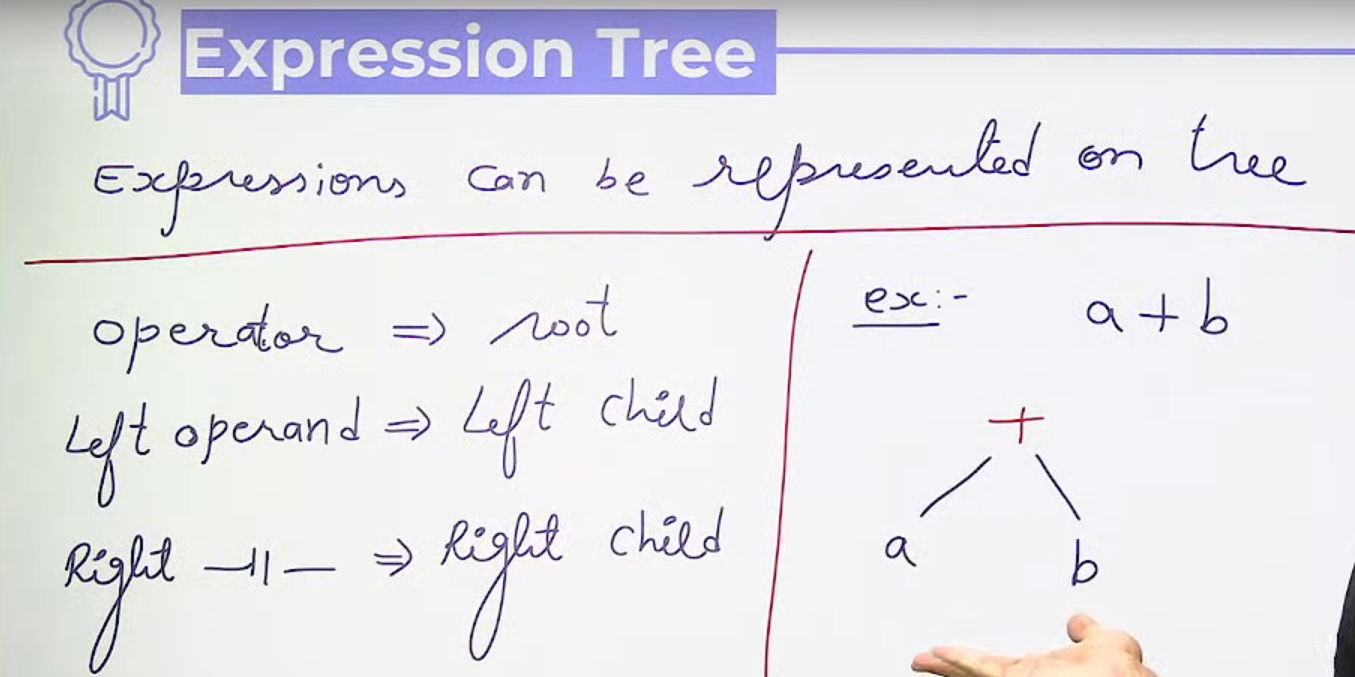 Expression Tree
Expressions can be represented on tree
operator => root
Left operand => Left child
Right —||— => Right child
ex:- a+b
+
a b